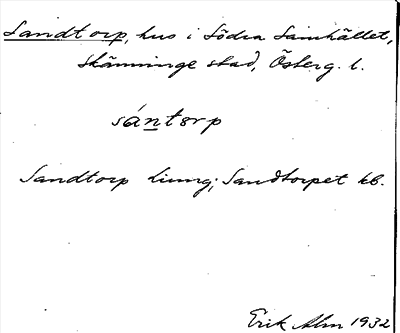 Sandtorp, hus i Södra Samhället,
Skänninge stad, Österg. l.
sántorp
Sandtorp liung; Sandtorpet kb.
Erik Alm 1932